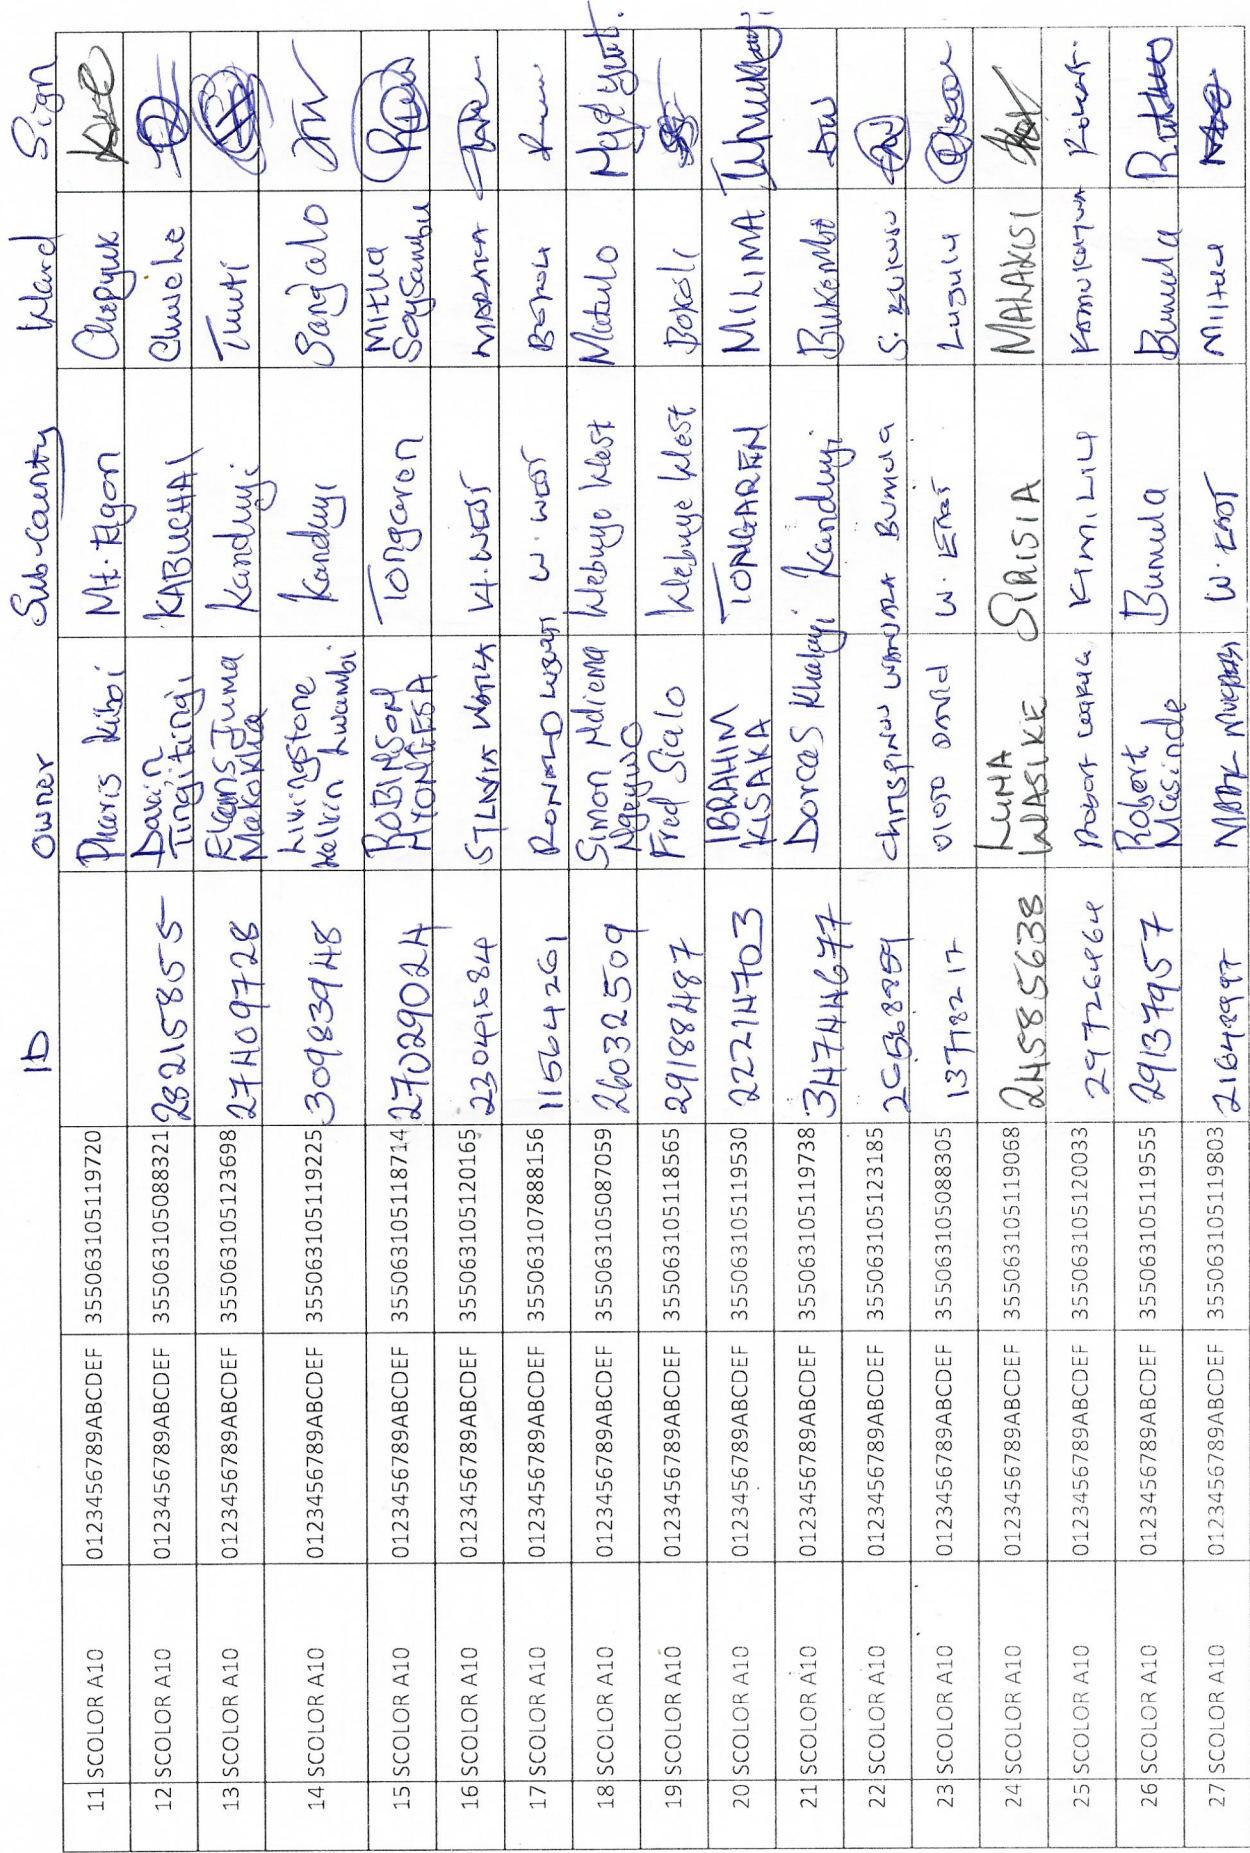 ID Owner Sub-County Ward Sign
11 SCOLOR A10 0123456789ABCDEF 355063105119720 Pharis Kiboi Mt. Elgon Chepyuk
12 SCOLOR A10 0123456789ABCDEF 355063105088321 28215855 David Tingitingi KABUCHAI Chwele
13 SCOLOR A10 0123456789ABCDEF 355063105123698 27409728 Juma Makokha Kanduyi Tuuti
14 SCOLOR A10 0123456789ABCDEF 355063105119225 30983948 Livingstone Kelvin Lwambi Kanduyi Sangalo JW
15 SCOLOR A10 0123456789ABCDEF 355063105118714 27029024 ROBINSON NYONGESA Tongaren Mitua Soysambu
16 SCOLOR A10 0123456789ABCDEF 355063105120165 23041684 SYLVIA W. WEST
17 SCOLOR A10 0123456789ABCDEF 355063107888156 11564261 RONALD W. WEST BOKOLI
18 SCOLOR A10 0123456789ABCDEF 355063105087059 26032509 Simon Ndiema Ngeywo Webuye West Matulo
19 SCOLOR A10 0123456789ABCDEF 355063105118565 29188487 Fred Sialo Webuye West Bokoli
20 SCOLOR A10 0123456789ABCDEF 355063105119530 22214703 IBRAHIM KISAKA TONGAREN MILIMA
21 SCOLOR A10 0123456789ABCDEF 355063105119738 34744677 Dorcas Khalayi Kanduyi Bukembe DW
22 SCOLOR A10 0123456789ABCDEF 355063105123185 Chrispinus Bumula S. BUKUSU
23 SCOLOR A10 0123456789ABCDEF 355063105088305 13778217 David W. EAST Lugulu
24 SCOLOR A10 0123456789ABCDEF 355063105119068 24585638 LUNA WASIKE SIRISIA MALAKISI
25 SCOLOR A10 0123456789ABCDEF 355063105120033 29726464 Robert KIMILILI Kamukuywa Robert
26 SCOLOR A10 0123456789ABCDEF 355063105119555 29137957 Robert Masinde Bumula Bumula
27 SCOLOR A10 0123456789ABCDEF 355063105119803 21648997 MARK W. EAST Mihuu